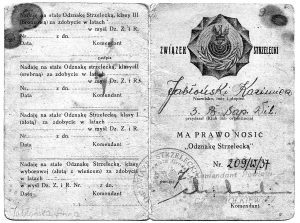 Nadaję na stałe Odznakę Strzelecką, klasy III
(bronzową) za zdobycie w latach
w myśl Dz. Z. i R.
Nr. z dn.
Data Komendant
Nadaję na stałe Odznakę Strzelecką, klasy II
(srebrną) za zdobycie w latach
w myśl Dz. Z. i R.
Nr. z dn.
Data Komendant
Nadaję na stałe Odznakę Strzelecką, klasy I
(złotą) za zdobycie w latach
w myśl Dz. Z. i R.
Nr. z dn.
Data Komendant
Nadaję na stałe Odznakę Strzelecką, klasy
wyborowej (złotą z wieńcem) za zdobycie w latach
w myśl Dz. Z. i R. Nr. z dn.
Data Komendant
ZWIĄZEK STRZELECKI
Jabłoński Kazimierz
Nazwisko, imię i stopień
3. B. Sap. Wil.
MA PRAWO NOSIĆ
"Odznakę Strzelecką"
Nr. 209/13/37
Komendant